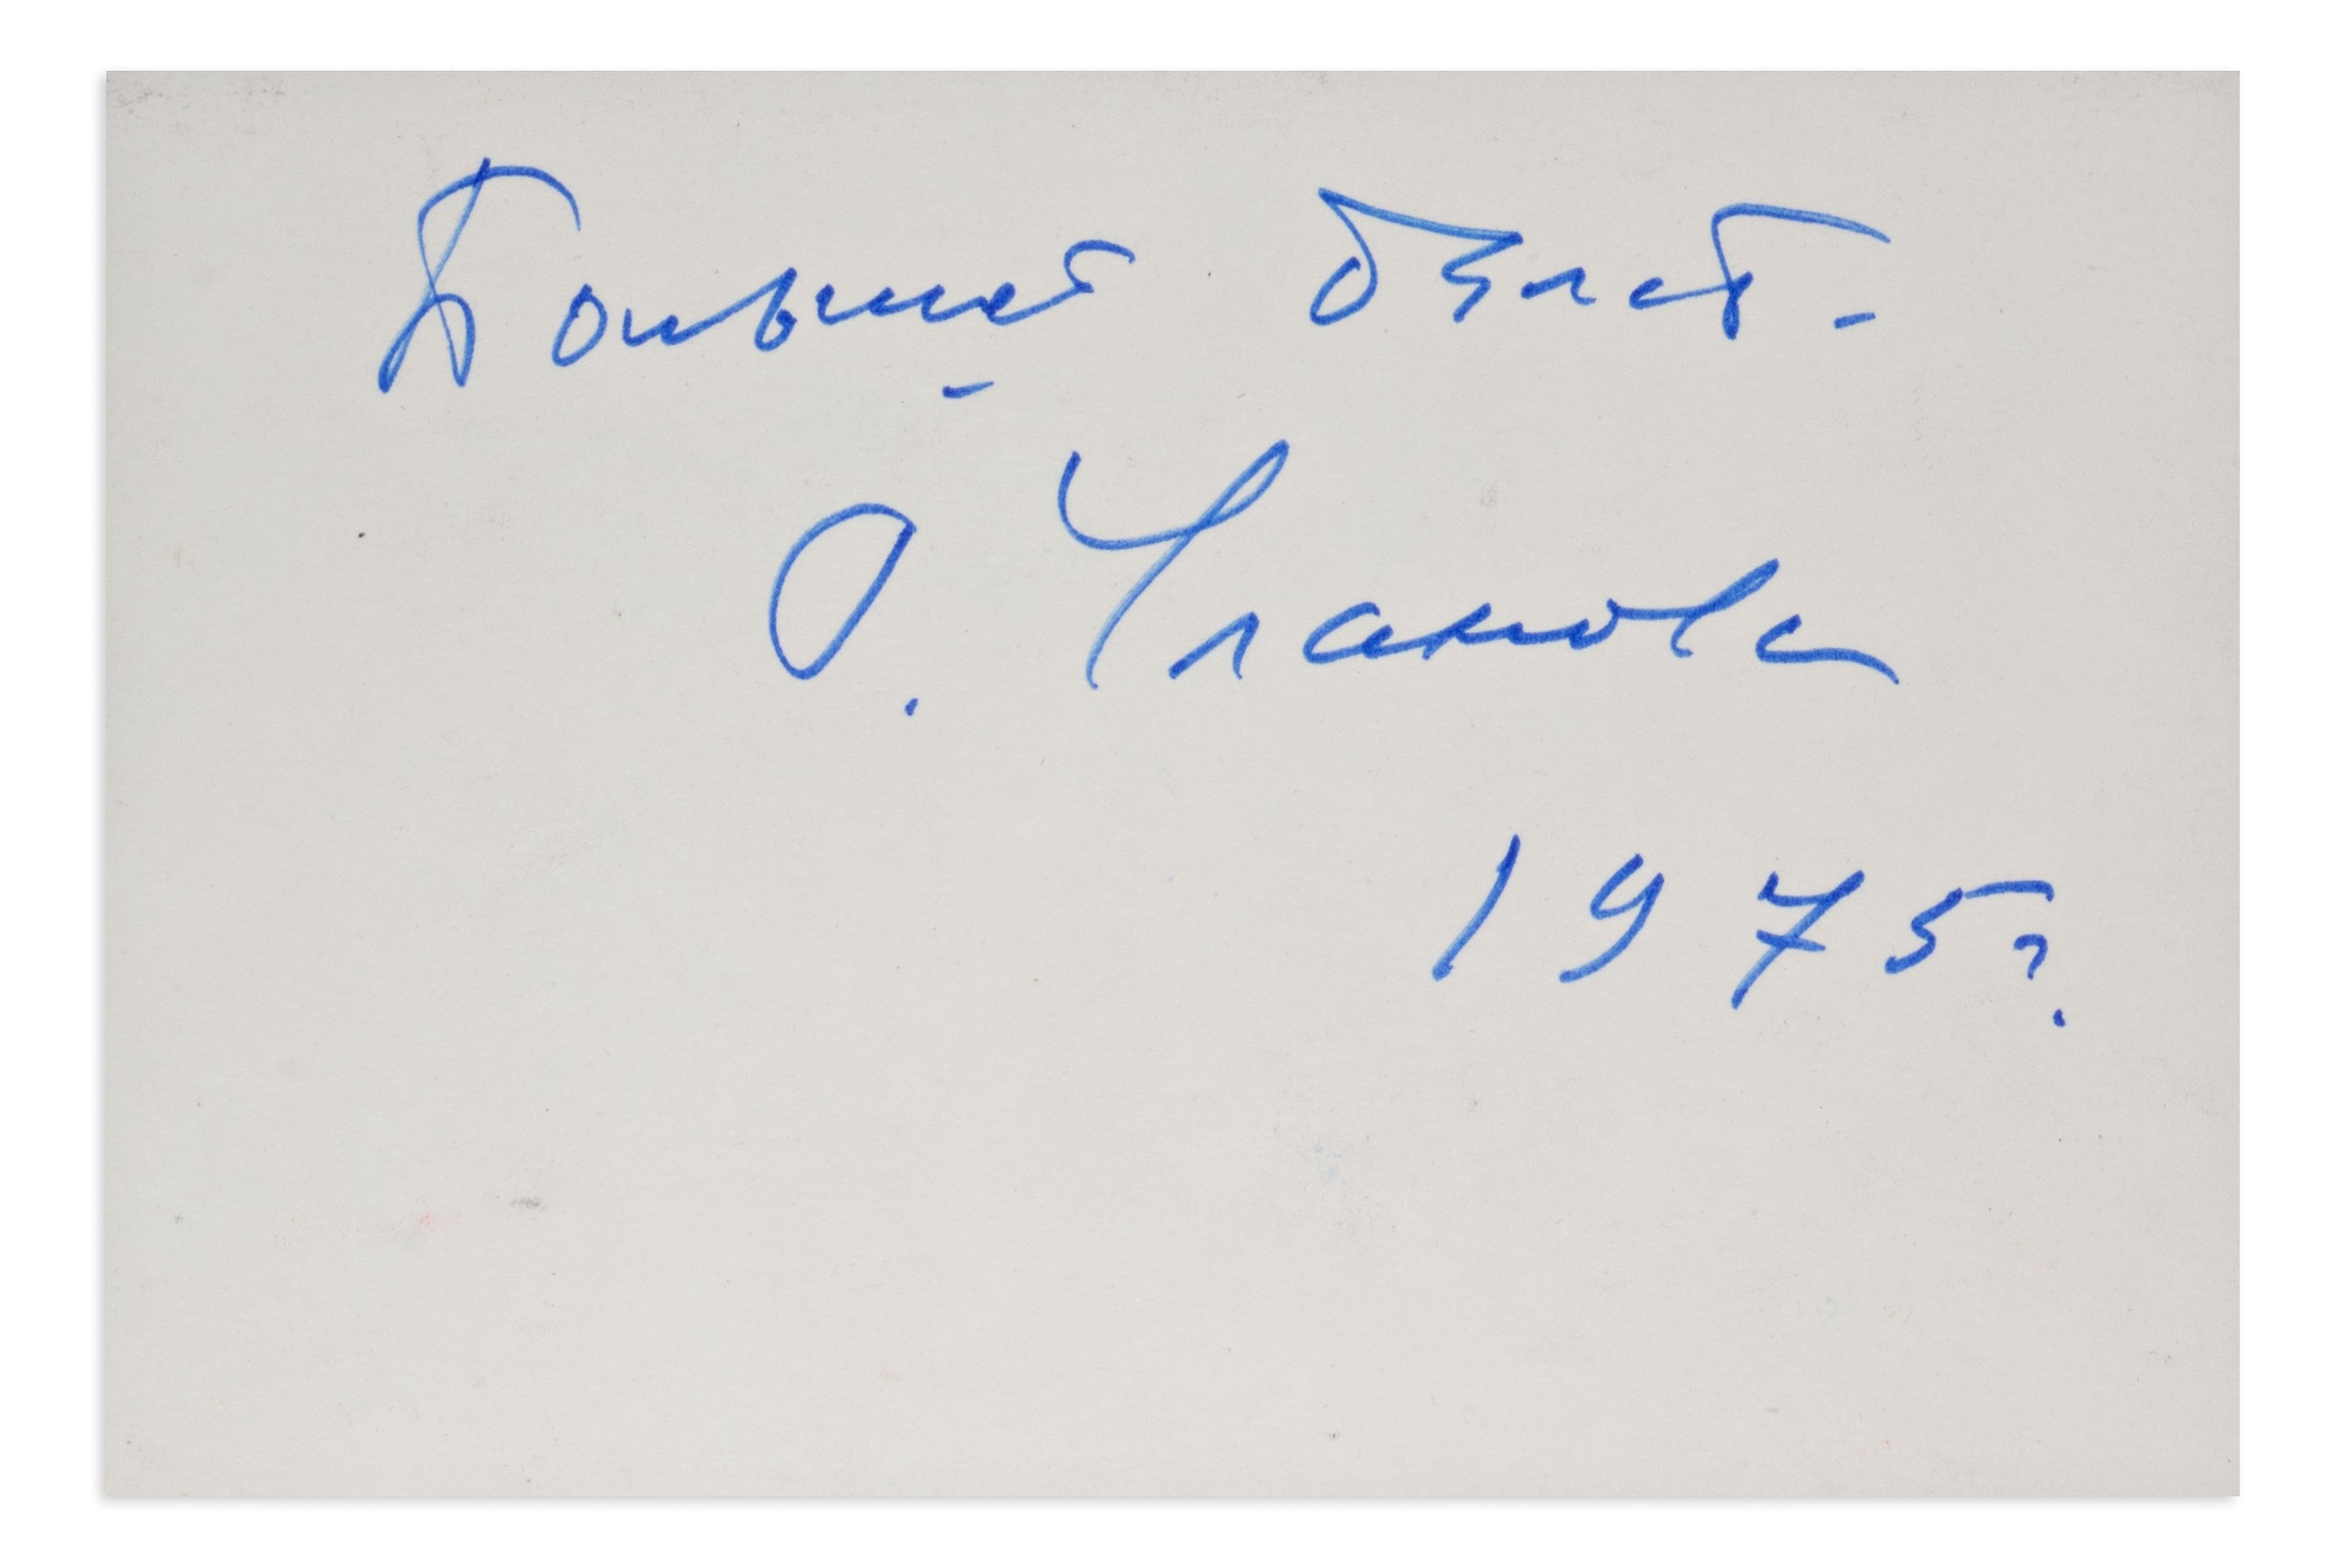 Большой балет -
О. Уланова
1975 г.